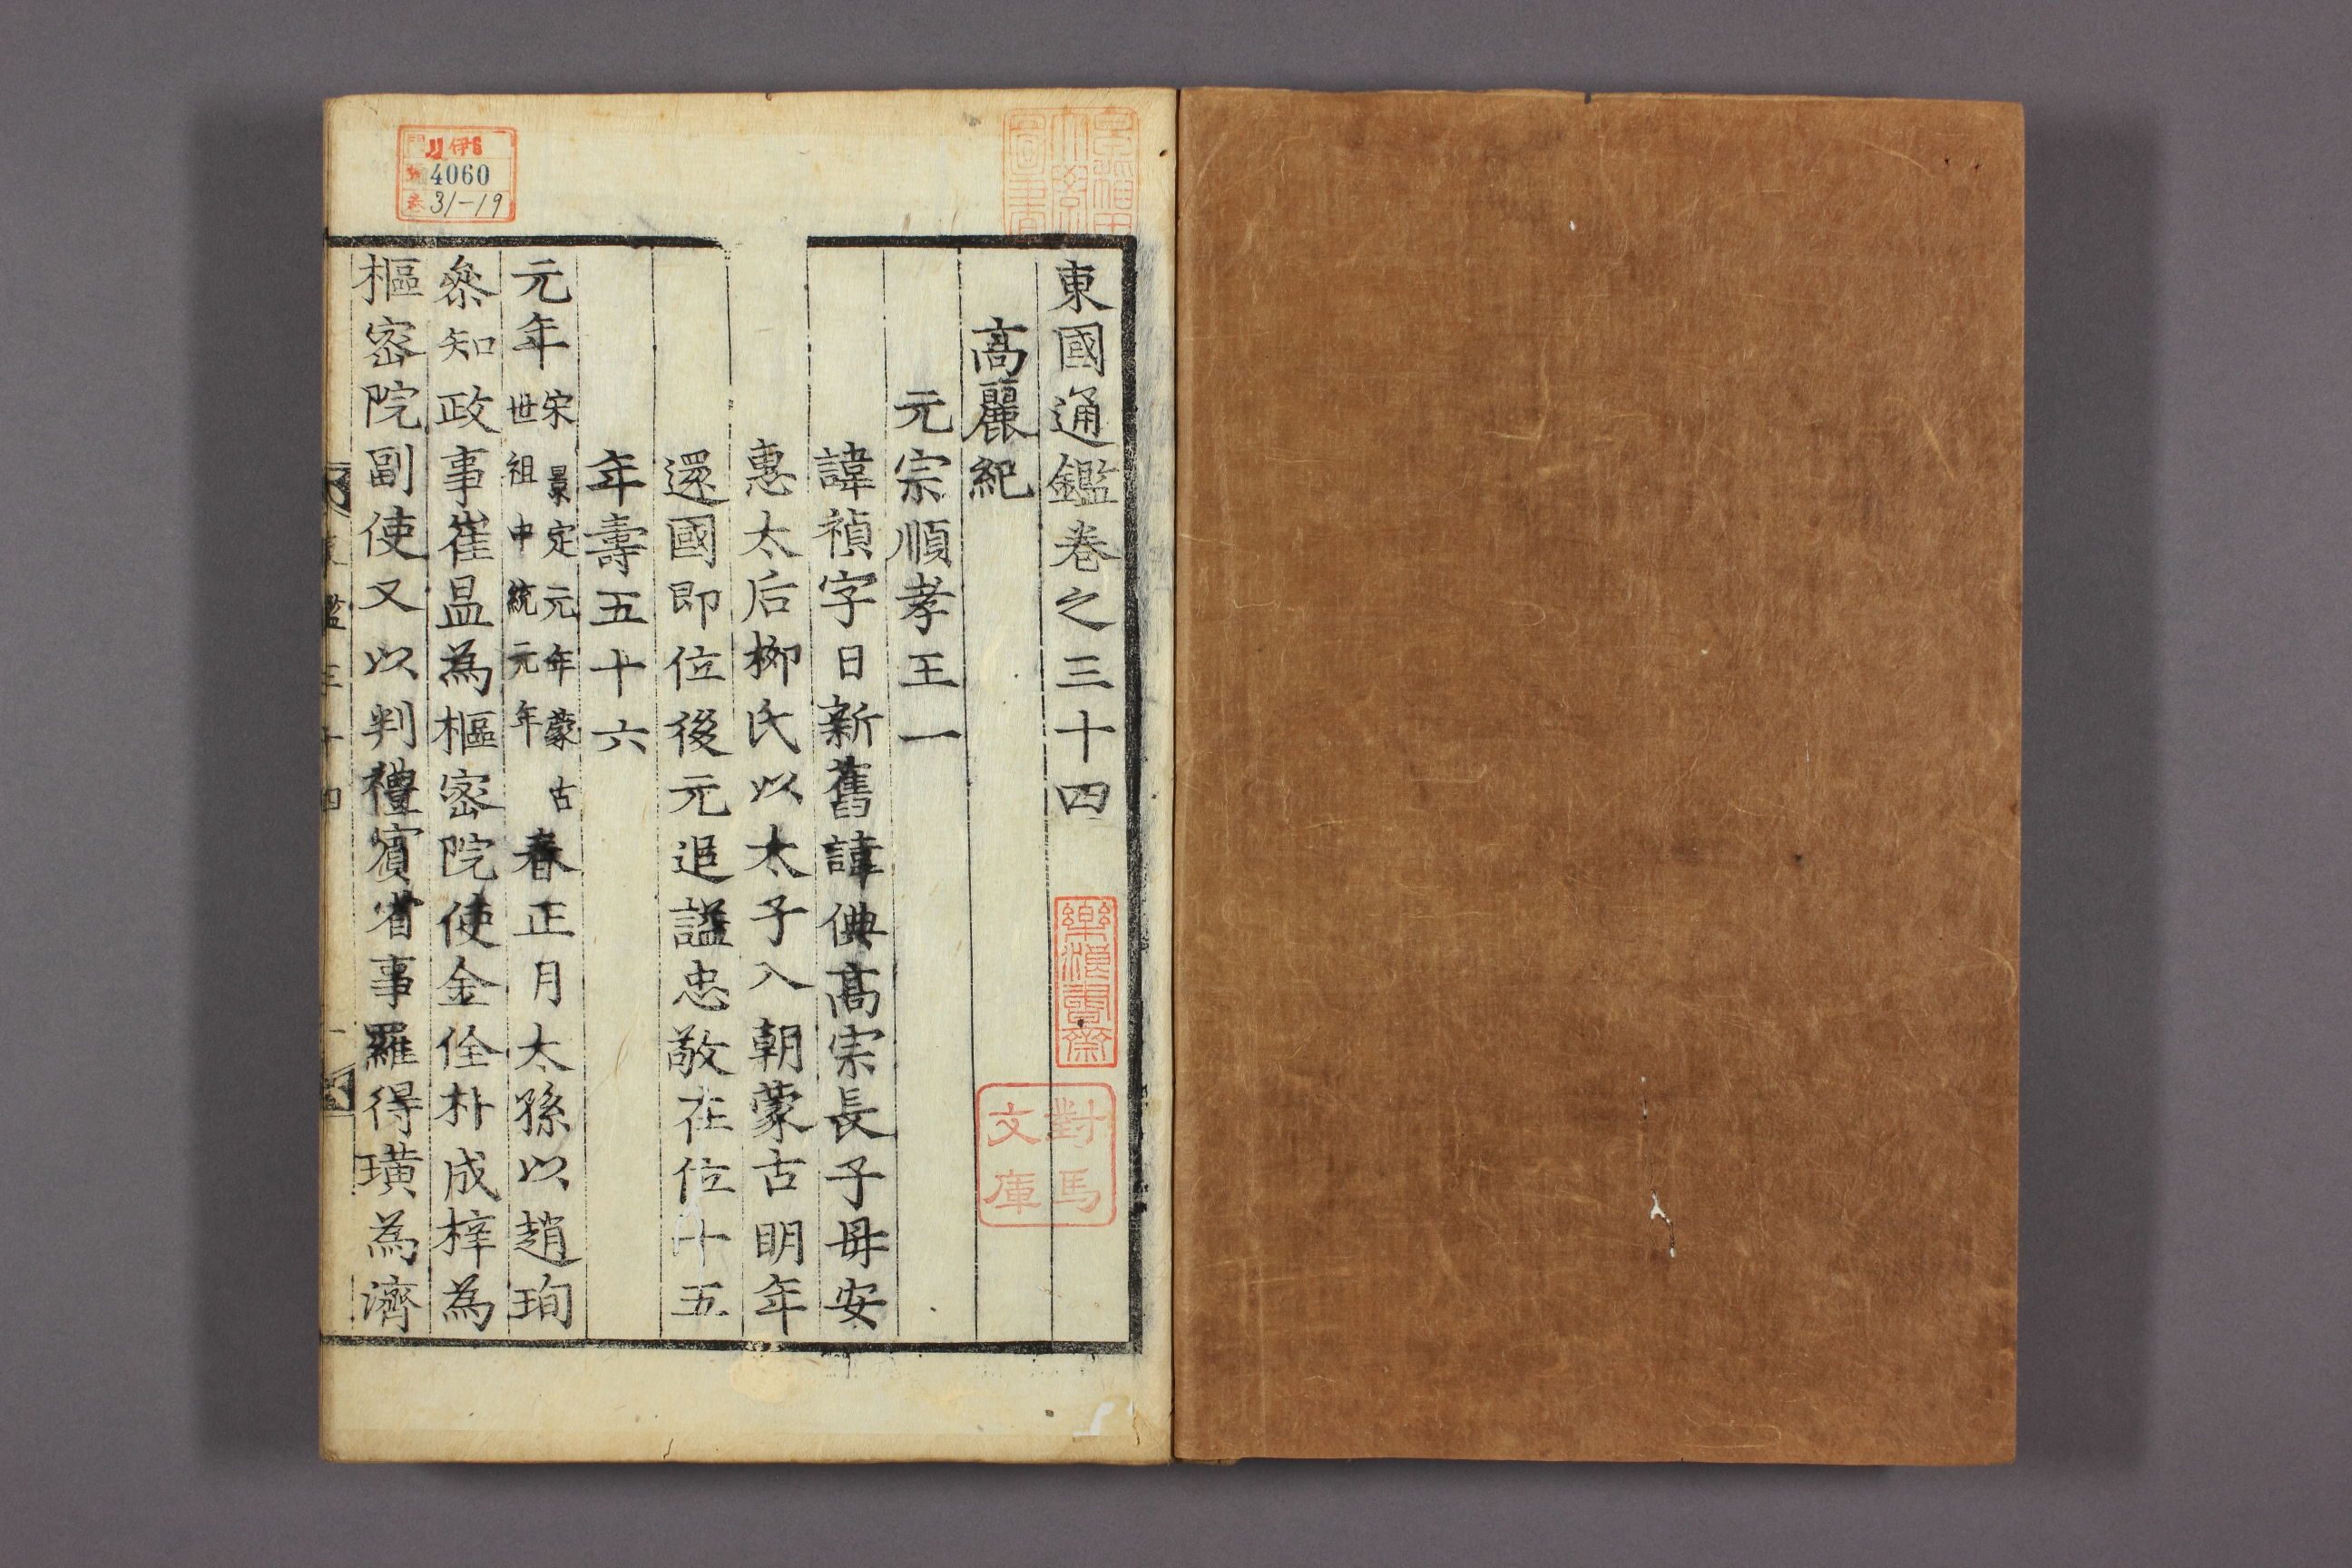 東國通鑑卷之三十四
高麗紀
元宗順孝王一
諱禎字日新舊諱倎高宗長子毋安
惠太后柳氏以太子入朝蒙古明年
還國即位後元追謚忠敬在位十五
年壽五十六
元年宋景定元年蒙古世祖中統元年春正月太孫以趙珣
叅知政事崔昷為樞密院使金佺朴成梓為
樞密院副使又以判禮賓省事羅得璜為濟
對馬文庫
伊6
4060
31-19